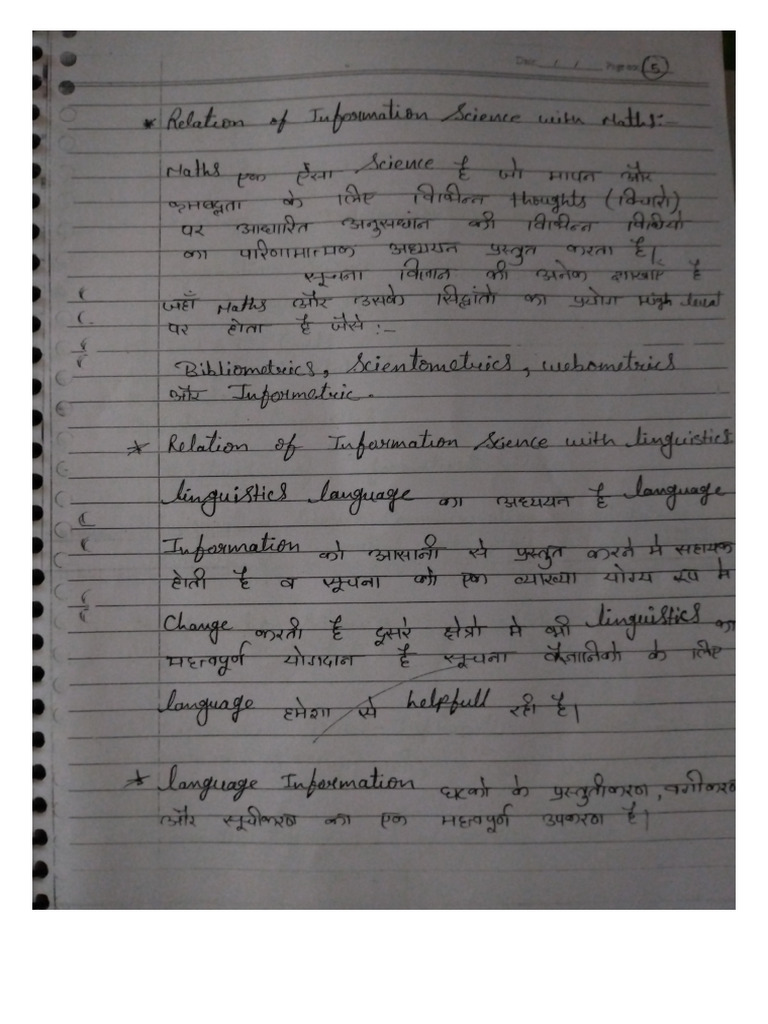 Date / / Page no. 5
* Relation of Information Science with Maths:-
Maths एक ऐसा Science है जो मापन और
क्रमबद्धता के लिए विभिन्न thoughts (विचारो)
पर आधारित अनुसंधान की विभिन्न विधियो
का परिणामात्मक अध्ययन प्रस्तुत करता है।
सूचना विज्ञान की अनेक शाखाएँ है
जहाँ Maths और उसके सिद्धांतो का प्रयोग High level
पर होता है जैसे :-
Bibliometrics, Scientometrics, webometrics
और Informetric.
* Relation of Information Science with linguistics
linguistics language का अध्ययन है language
Information को आसानी से प्रस्तुत करने मे सहायक
होती है व सूचना को एक व्याख्या योग्य रूप मे
Change करती है दूसरे क्षेत्रो मे भी linguistics का
महत्वपूर्ण योगदान है सूचना वैज्ञानिको के लिए
language हमेशा से helpfull रही है।
* language Information घटको के प्रस्तुतीकरण, वर्गीकरण
और सूचीकरण का एक महत्वपूर्ण उपकरण है।